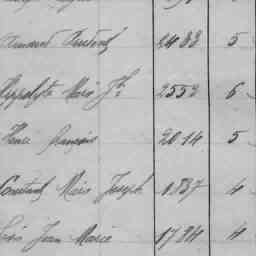 Armand Prudent 2488 5
Hippolyte Marie Jh 2552 6
Henri François 2014 5
Constant Marie Joseph 1887 4
Jean Marie 1784 4